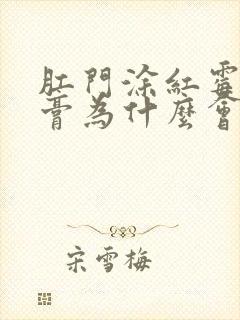 肛門涂紅霉
膏為什麼會
宋雪梅